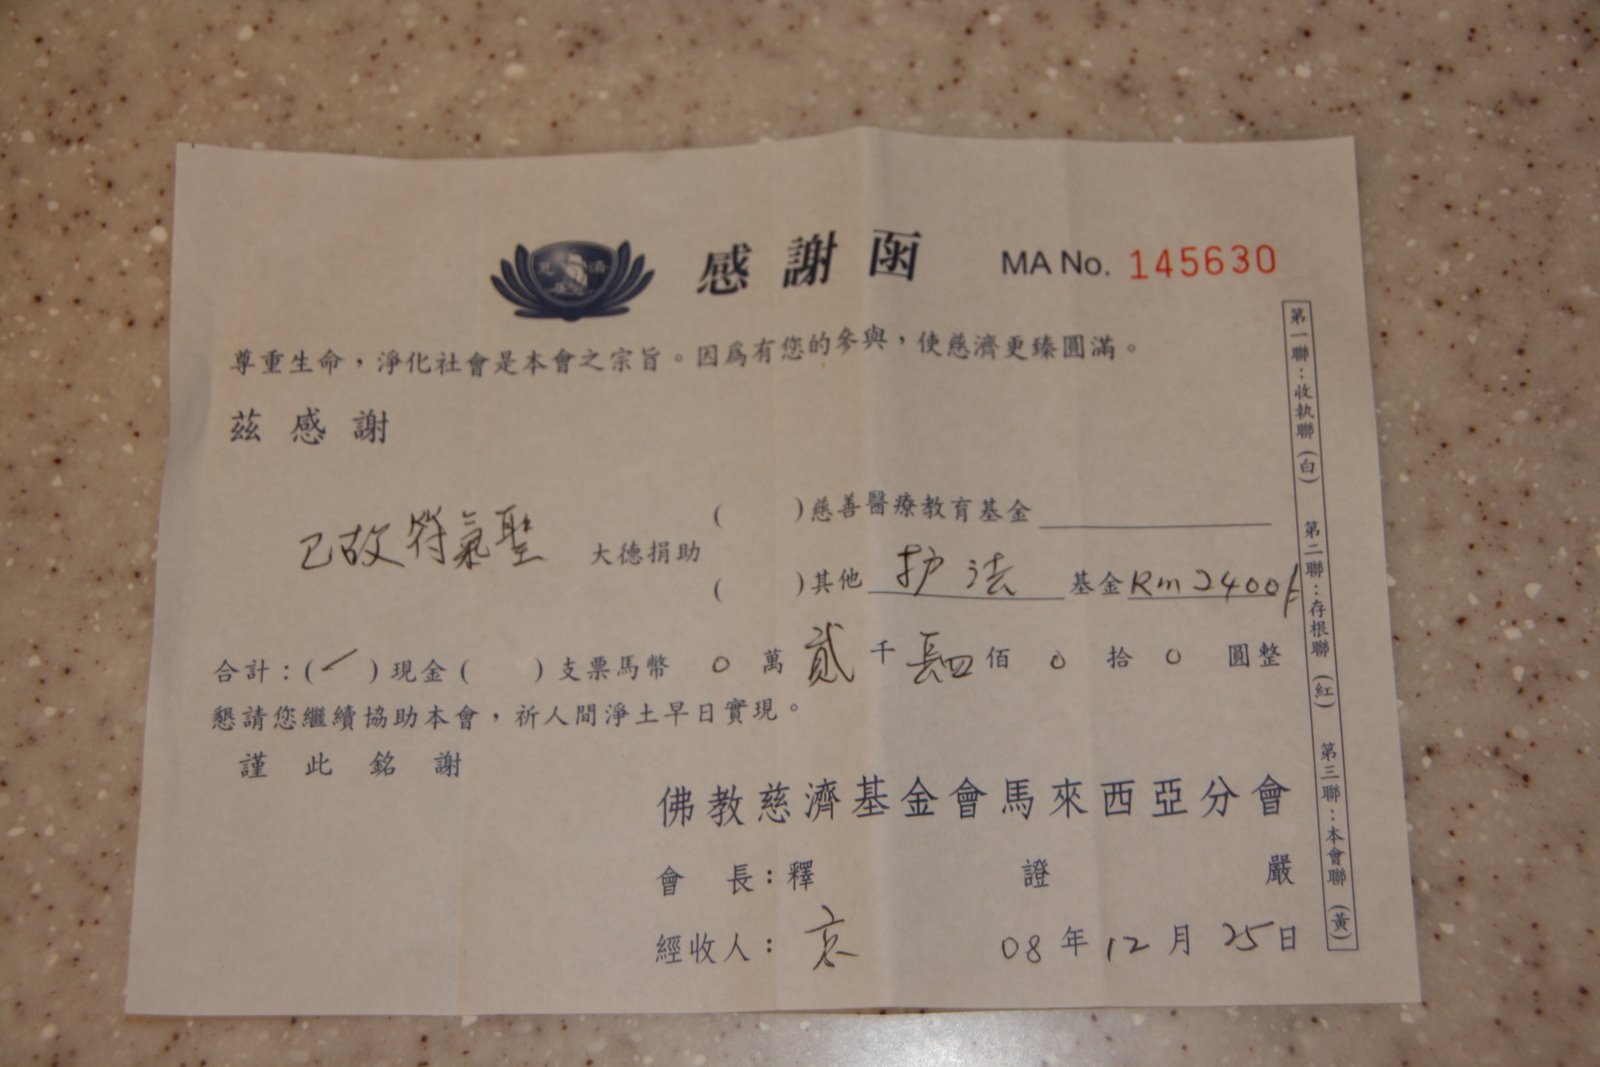 慈濟
感謝函 MA No. 145630
尊重生命，淨化社會是本會之宗旨。因爲有您的參與，使慈濟更臻圓滿。
茲感謝
( )慈善醫療教育基金
已故符氣聖 大德捐助
( )其他 护法 基金 Rm 2400/-
合計：(✓)現金( )支票馬幣 0 萬 貳 千 肆 佰 0 拾 0 圓整
懇請您繼續協助本會，祈人間淨土早日實現。
謹此銘謝
佛教慈濟基金會馬來西亞分會
會長：釋證嚴
經收人： 08 年 12 月 25 日
第一聯：收執聯(白) 第二聯：存根聯(紅) 第三聯：本會聯(黃)